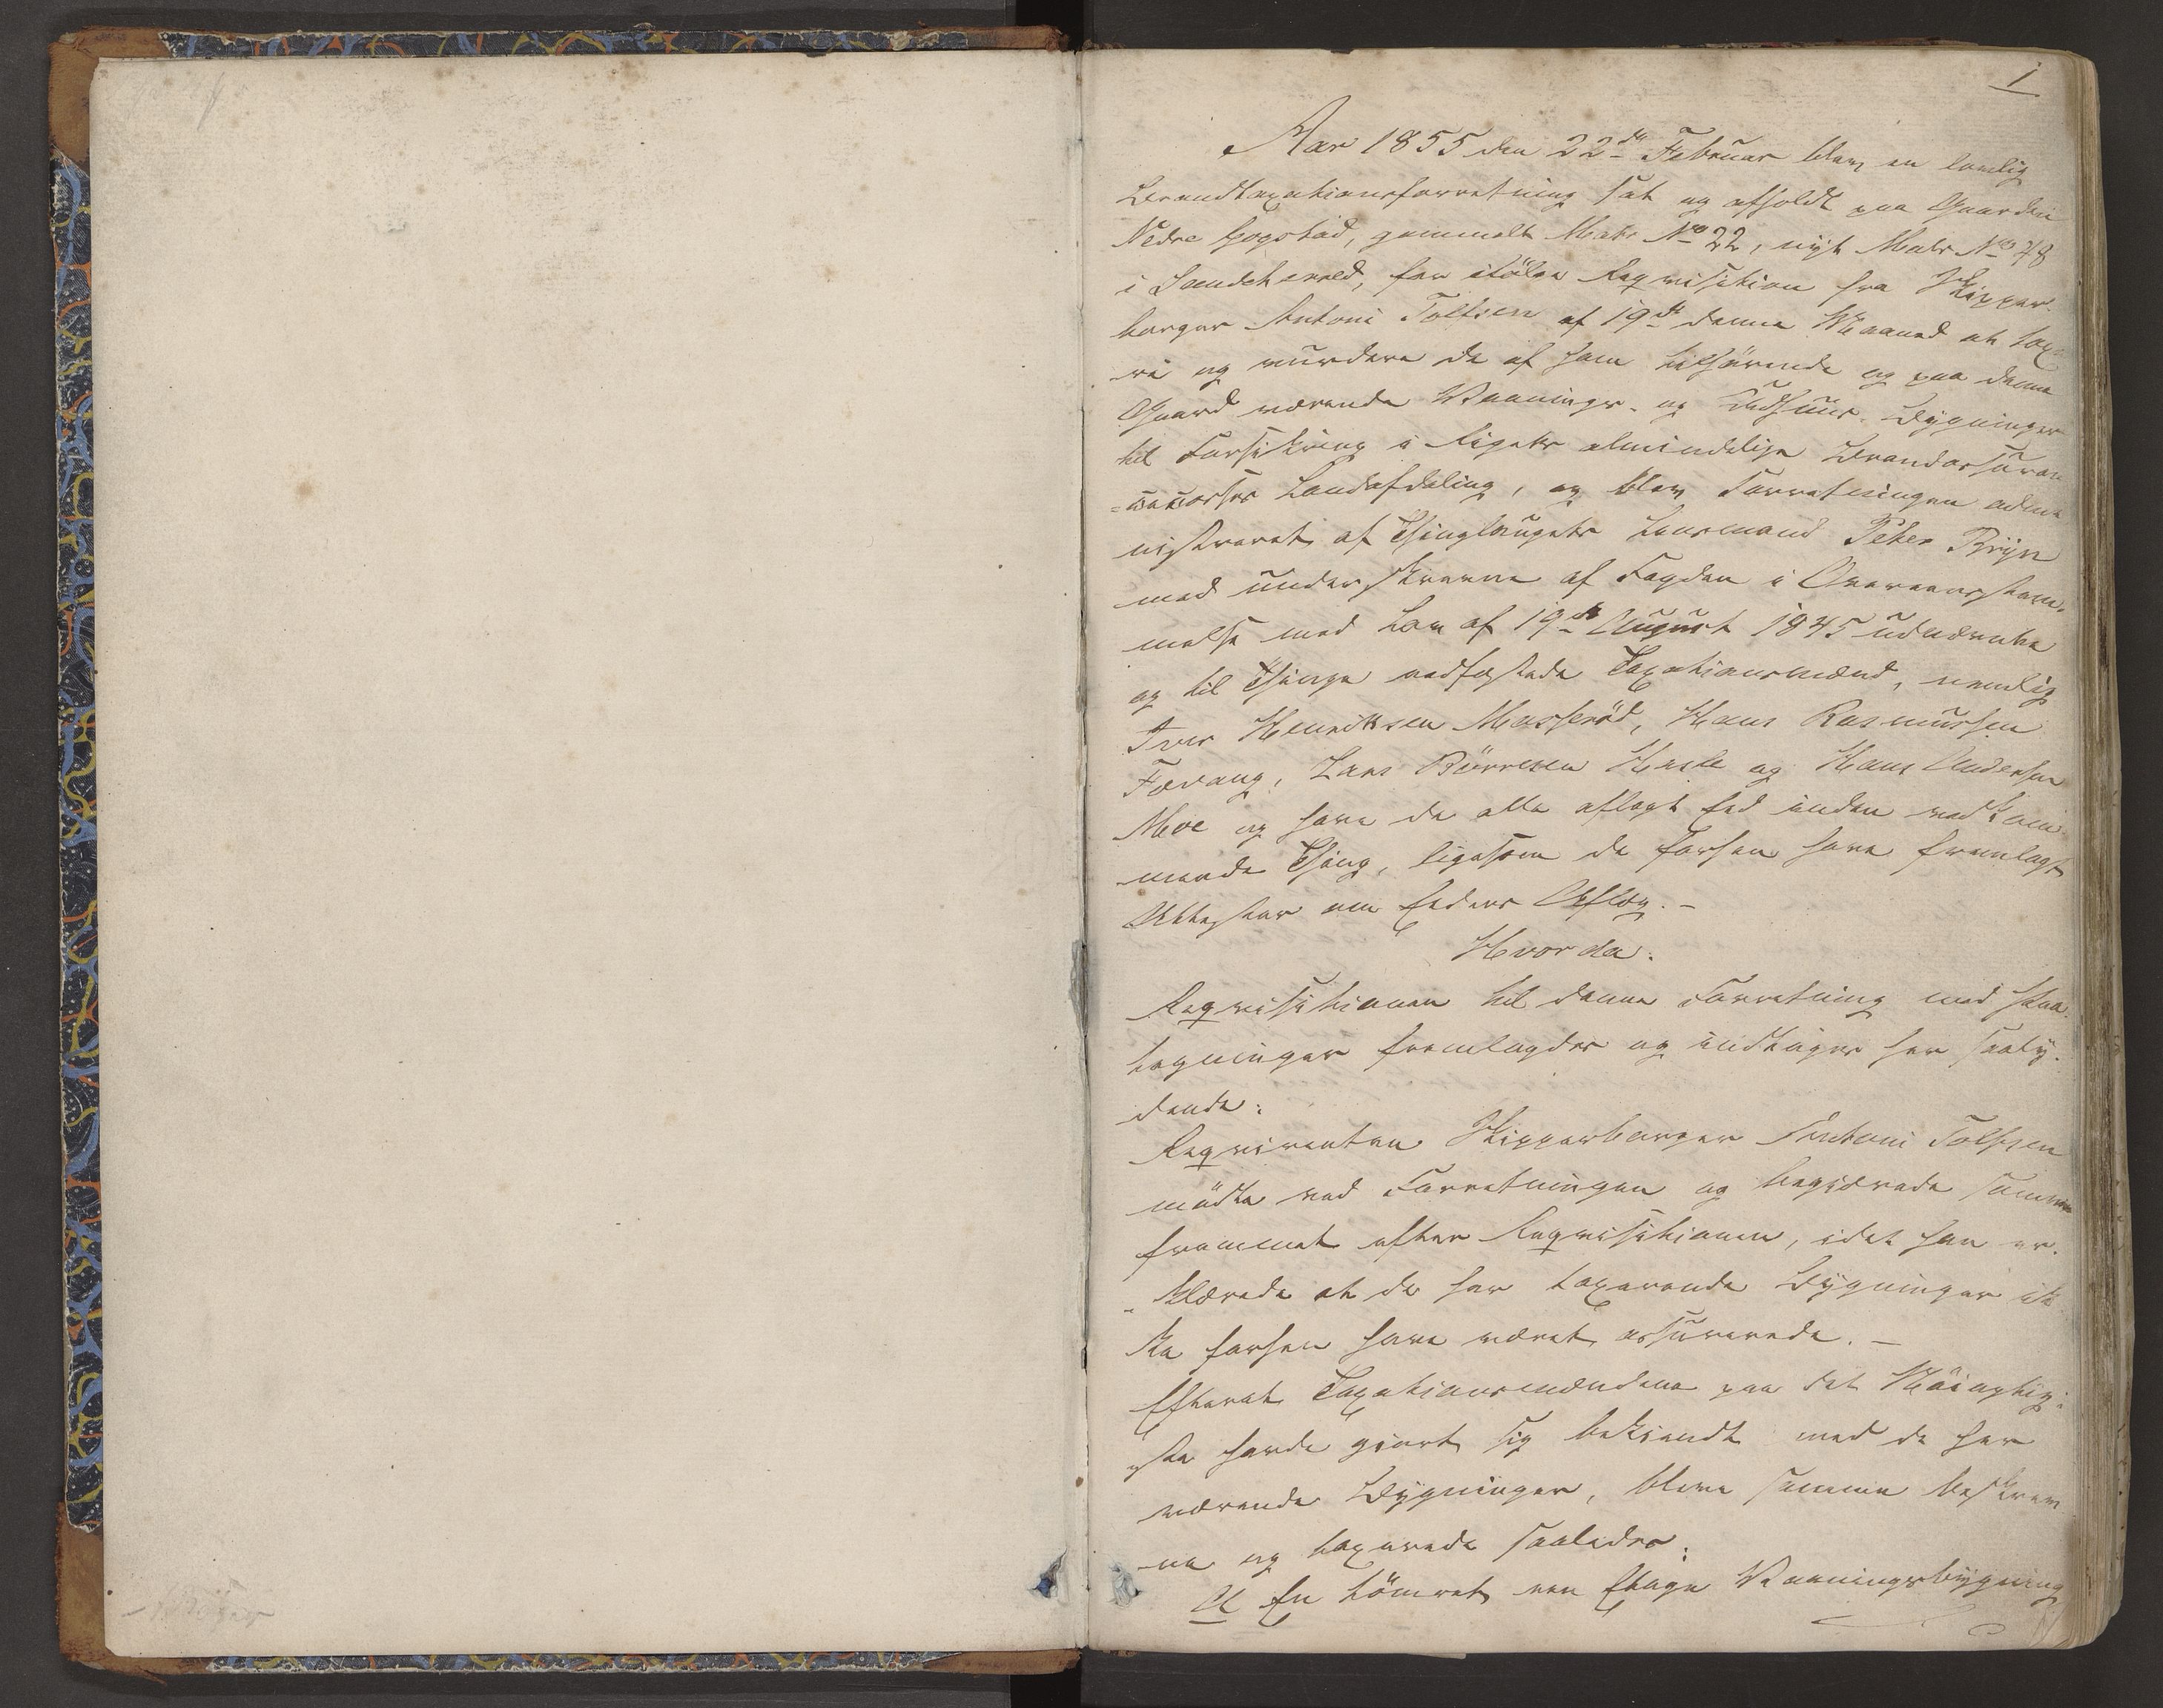 1
Aar 1855 den 22de Februar blev en lovlig
Brandtaxationsforretning sat og afholdt paa Gaarden
Nedre Gogstad, gammelt Matr No 22, nyt Matr No 48
i Sandeherred, for ifølge Reqvisition fra Skipper-
borger Antoni Tollfsen af 19de denne Maaned at taxe-
re og vurdere de af ham tilhørende og paa denne
Gaard værende Vaanings- og Udhuus-Bygninger
til Forsikring i Rigets almindelige Brandassuran-
=cecasses Landafdeling, og blev Forretningen admi-
nistreret af Thinglaugets Lensmand Peter Bryn
med underskrevne af Fogden i Overensstem-
melse med Lov af 19de August 1845 udnævnte
og til Thinge edfæstede Taxationsmænd, nemlig
Iver Henriksen Masserød, Hans Rasmussen
Fevang, Lars Børresen Hasle og Hans Andersen
Moe og have de alle aflagt Eed inden vedkom-
mende Thing, ligesom de forhen have fremlagt
Attester om Edens Aflæg.-
Hvorda:
Reqvisitionen til denne Forretning med Paa-
tegninger fremlagdes og indtages her saaly-
dende:
Reqvirenten Skipperborger Antoni Tollfsen
mødte ved Forretningen og begjærede samme
fremmet efter Reqvisitionen, idet han er-
klærede at de her taxerende Bygninger ik-
ke forhen have været assurerede.-
Efterat Taxationsmændene paa det Nøiagtig-
ste havde gjort sig bekjendt med de her
værende Bygninger, bleve samme beskrev-
ne og taxerede saaledes:
A En tømret een Etages Vaaningsbygning